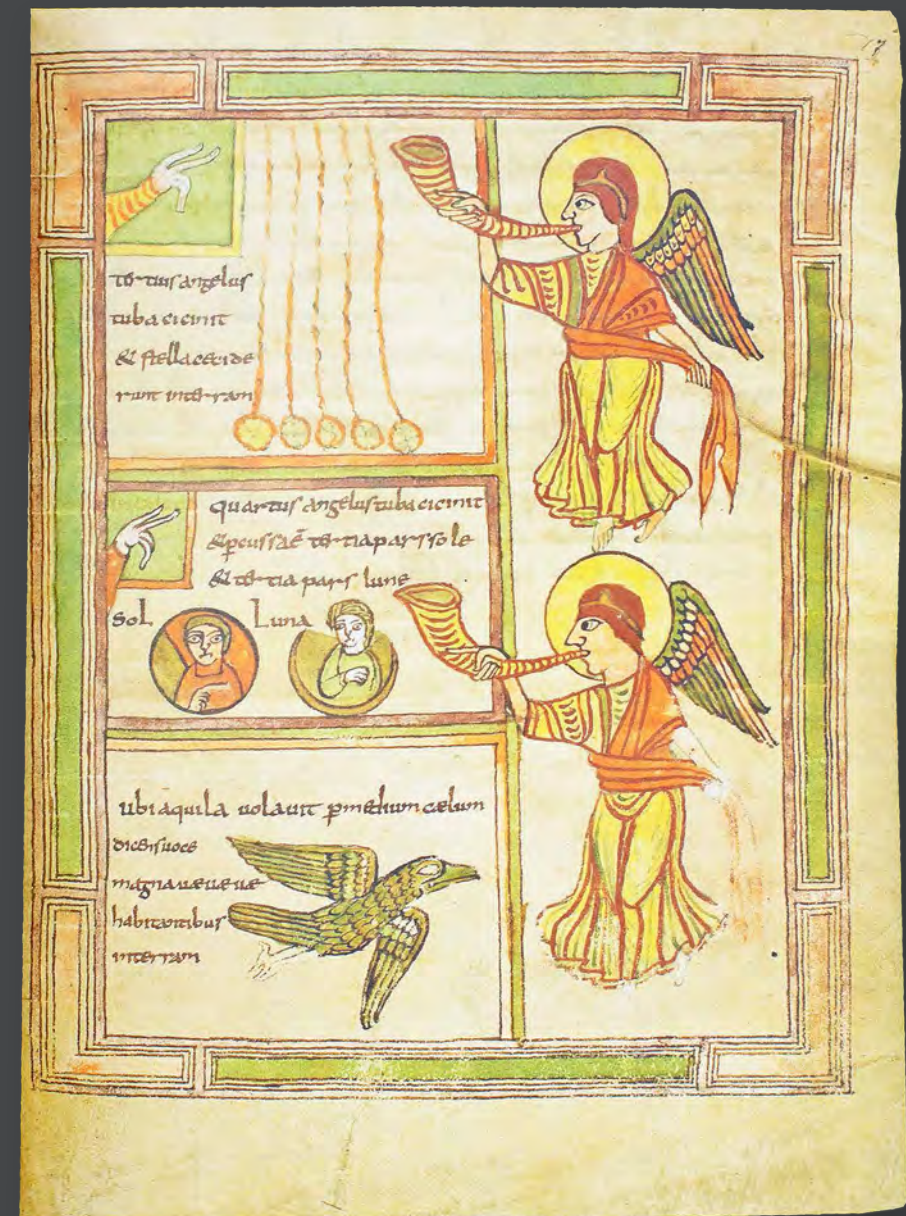 17
tertius angelus
tuba cicinit
& stella cecide
runt interram
quartus angelus tuba cicinit
& pcussa ē tertia pars sole
& tertia pars lune
Sol Luna
ubi aquila uolauit p medium cælum
dicens uoce
magna uæ uæ uæ
habitantibus
interram